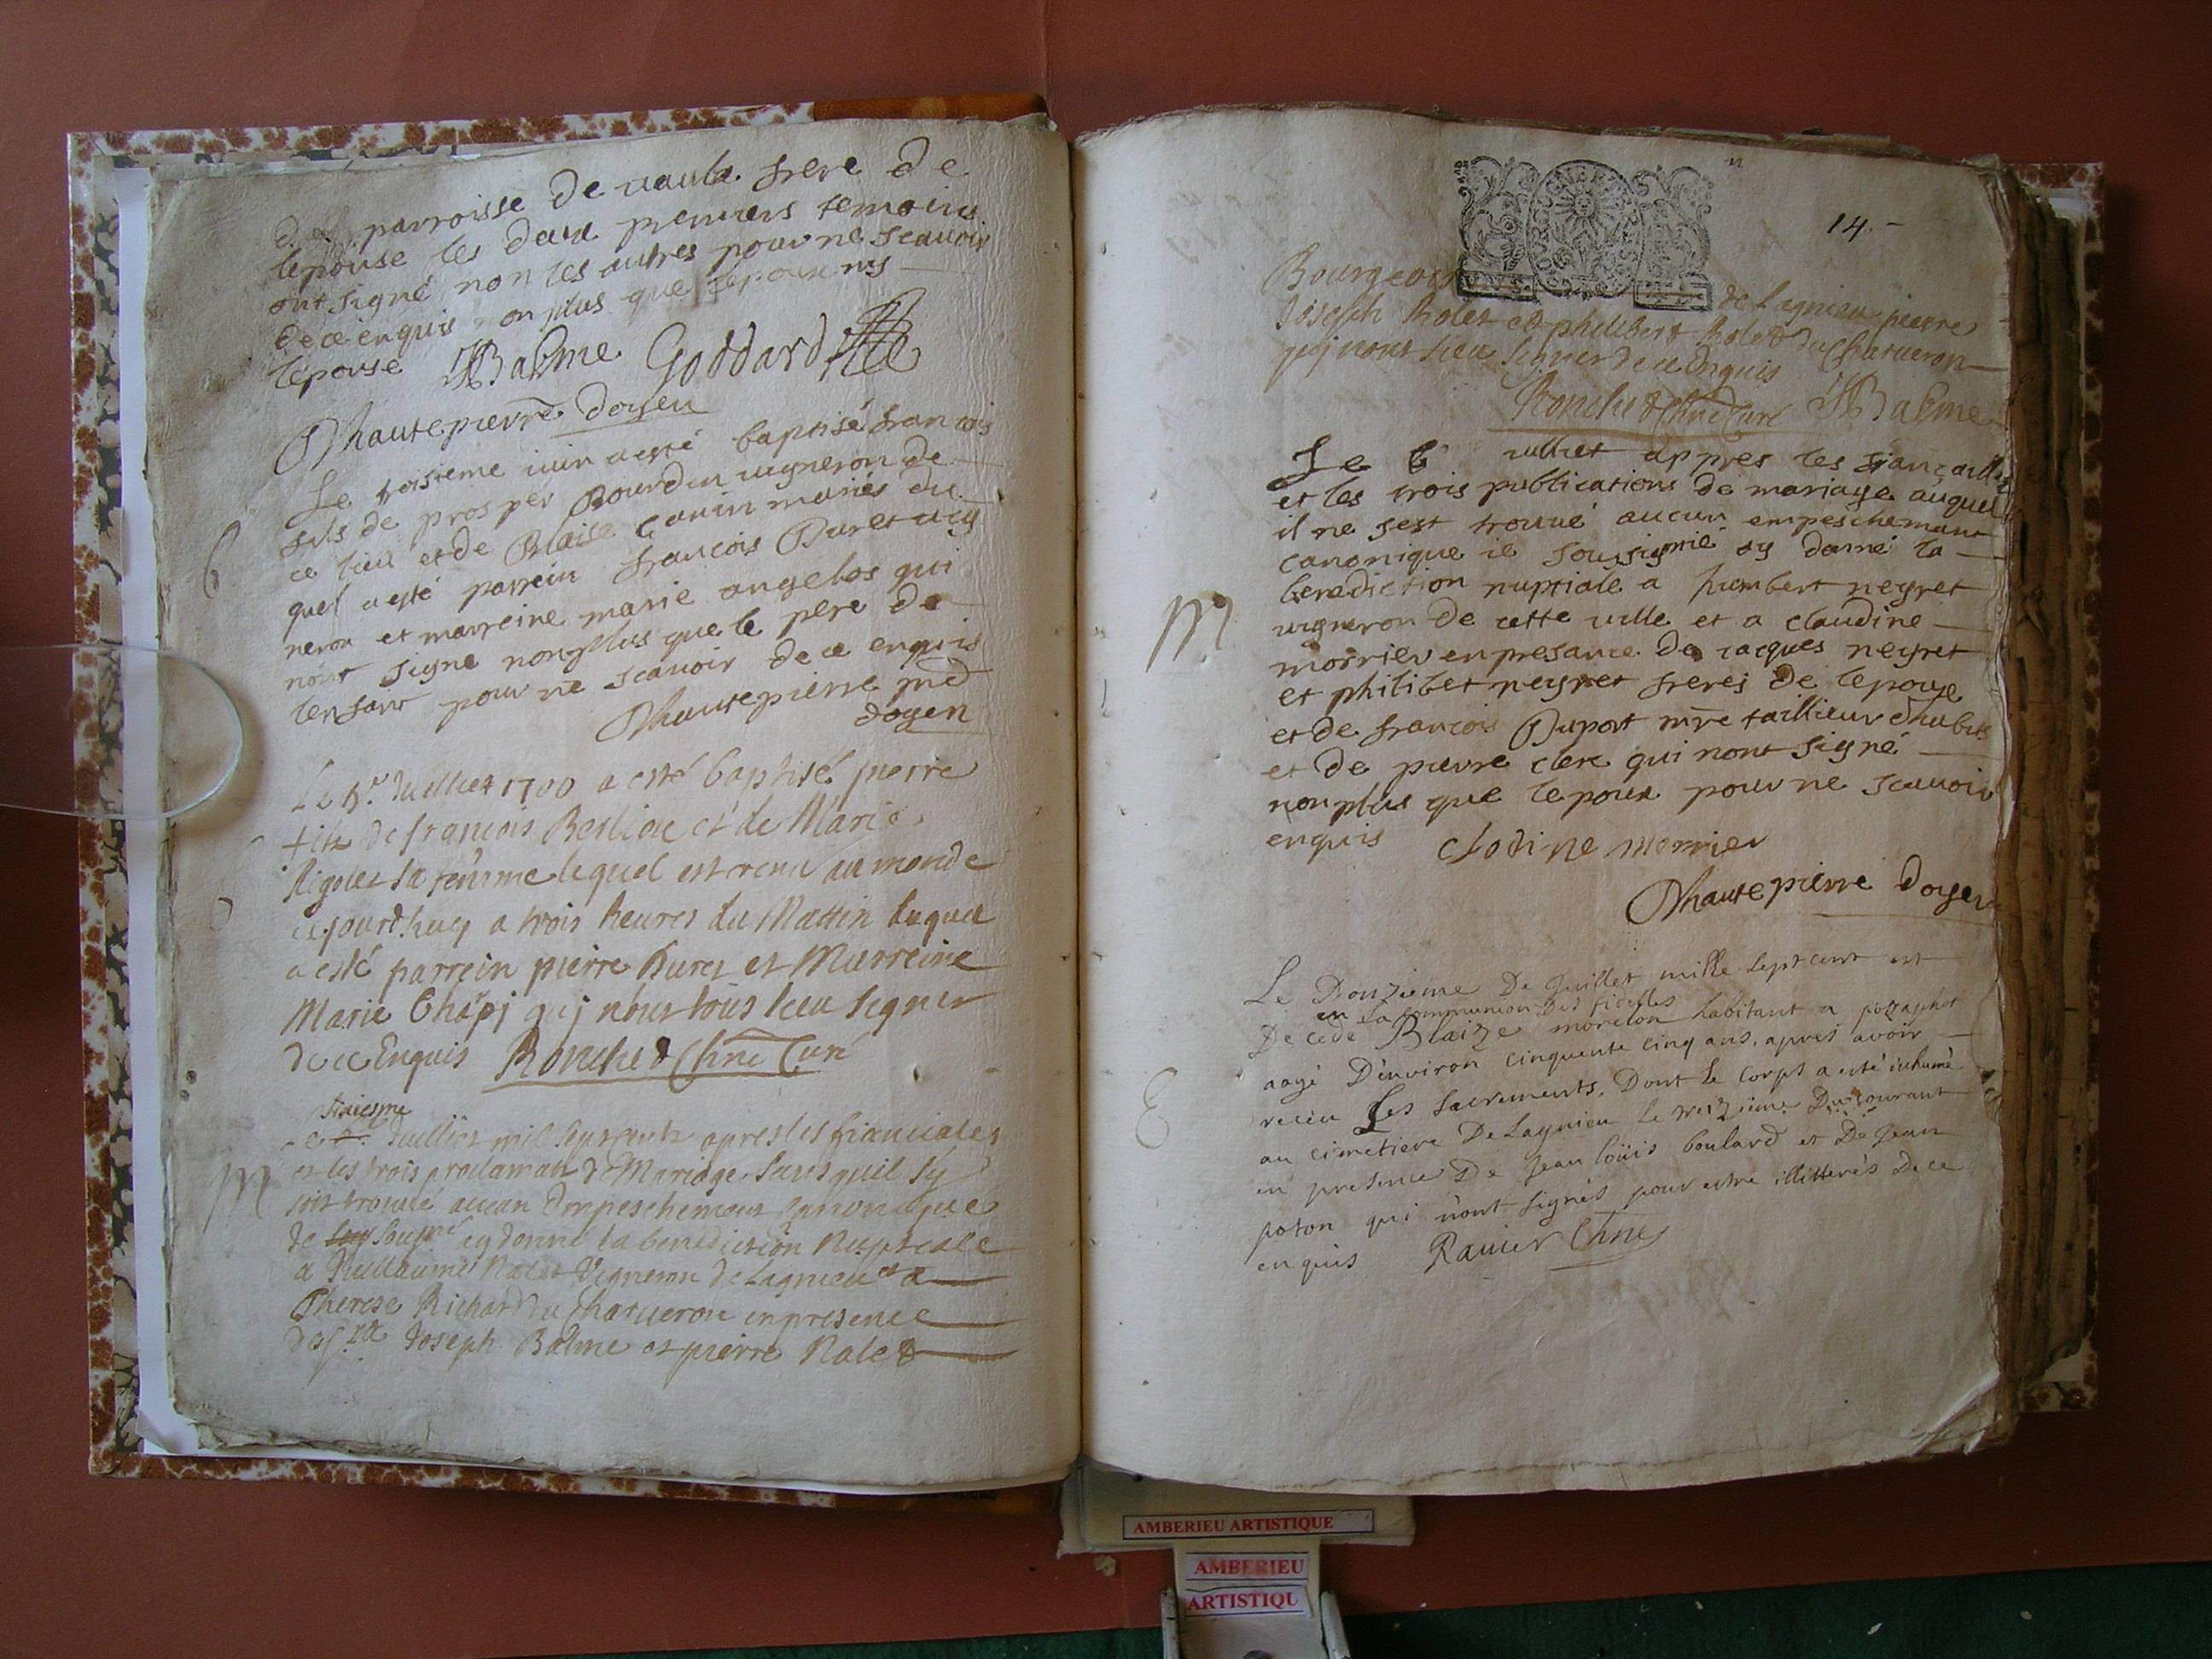 parroisse de vaulx frere de
lepouse les deux premiers temoins
ont signé non les autres pour ne scauoir
de ce enquis non plus que lepoux ny
lepouse JBalme Goddard
Dhautepierre doyen
Le troisieme iuin a esté baptisé francois
fils de prosper Bourdin uigneron de
ce lieu et de Blaise mariés du
quel a esté parrein francois Duret uig
neron et marreine marie angelos qui
nont signe nonplus que le pere de
lenfant pour ne scauoir de ce enquis
Dhautepierre
doyen
Le Juilliet 1700 a esté baptisé pierre
fils de francois Berlioz et de Marie
Rigolet sa femme lequel est venu au monde
cejourdhuy a trois heures du Mattin duquel
a esté parrein pierre Duret et Marreine
Marie qui nont tous sceu signer
de ce Enquis Ronchet Chne Curé
sixiesme
Juilliet mil sept cents apres les fiancailles
et les trois proclamatz de Mariage sans quil sy
soit trouué aucun Empeschement canonique
Je soussgné ay donné la benediction Nuptiale
a Guillaume Rolet Vigneron de Lagnieu et a
Therese Richard du Charueron en presence
de Joseph Balme et pierre Rolet
14.
Bourgeois de Lagnieu pierre
Joseph Rolet et philibert Rolet du Charueron
qui nont sceu signer de ce Enquis
Ronchet Chne Curé JBalme
Le 6 iulliet appres les fiancailles
et les trois publications de mariage auquel
il ne sest trouué aucun empeschemant
canonique ie soussigné ay donné la
benediction nuptiale a humbert neyret
uigneron de cette uille et a claudine
morrier en presance de iacques neyret
et philibet neyret freres de lepoux
et de francois Duport mre taillieur dhabits
et de pierre clerc qui nont signé
non plus que lepoux pour ne scauoir
enquis clodine morrier
Dhautepierre doyen
M
Le Douzieme De Juillet mille sept cent est
en La communion Des fidelles
Decede Blaize morelon habitant a postaphot
aagé D'environ cinquente cinq ans, apres avoir
receu Les sacrements, Dont le corps a esté inhumé
au cimetiere De Lagnieu Le treizieme Du courant
en presence De Jean loüis boulard et De Jean
poton qui n'ont signés pour estre illitterés De ce
enquis Ravier Chne
AMBERIEU ARTISTIQUE
AMBERIEU
ARTISTIQU